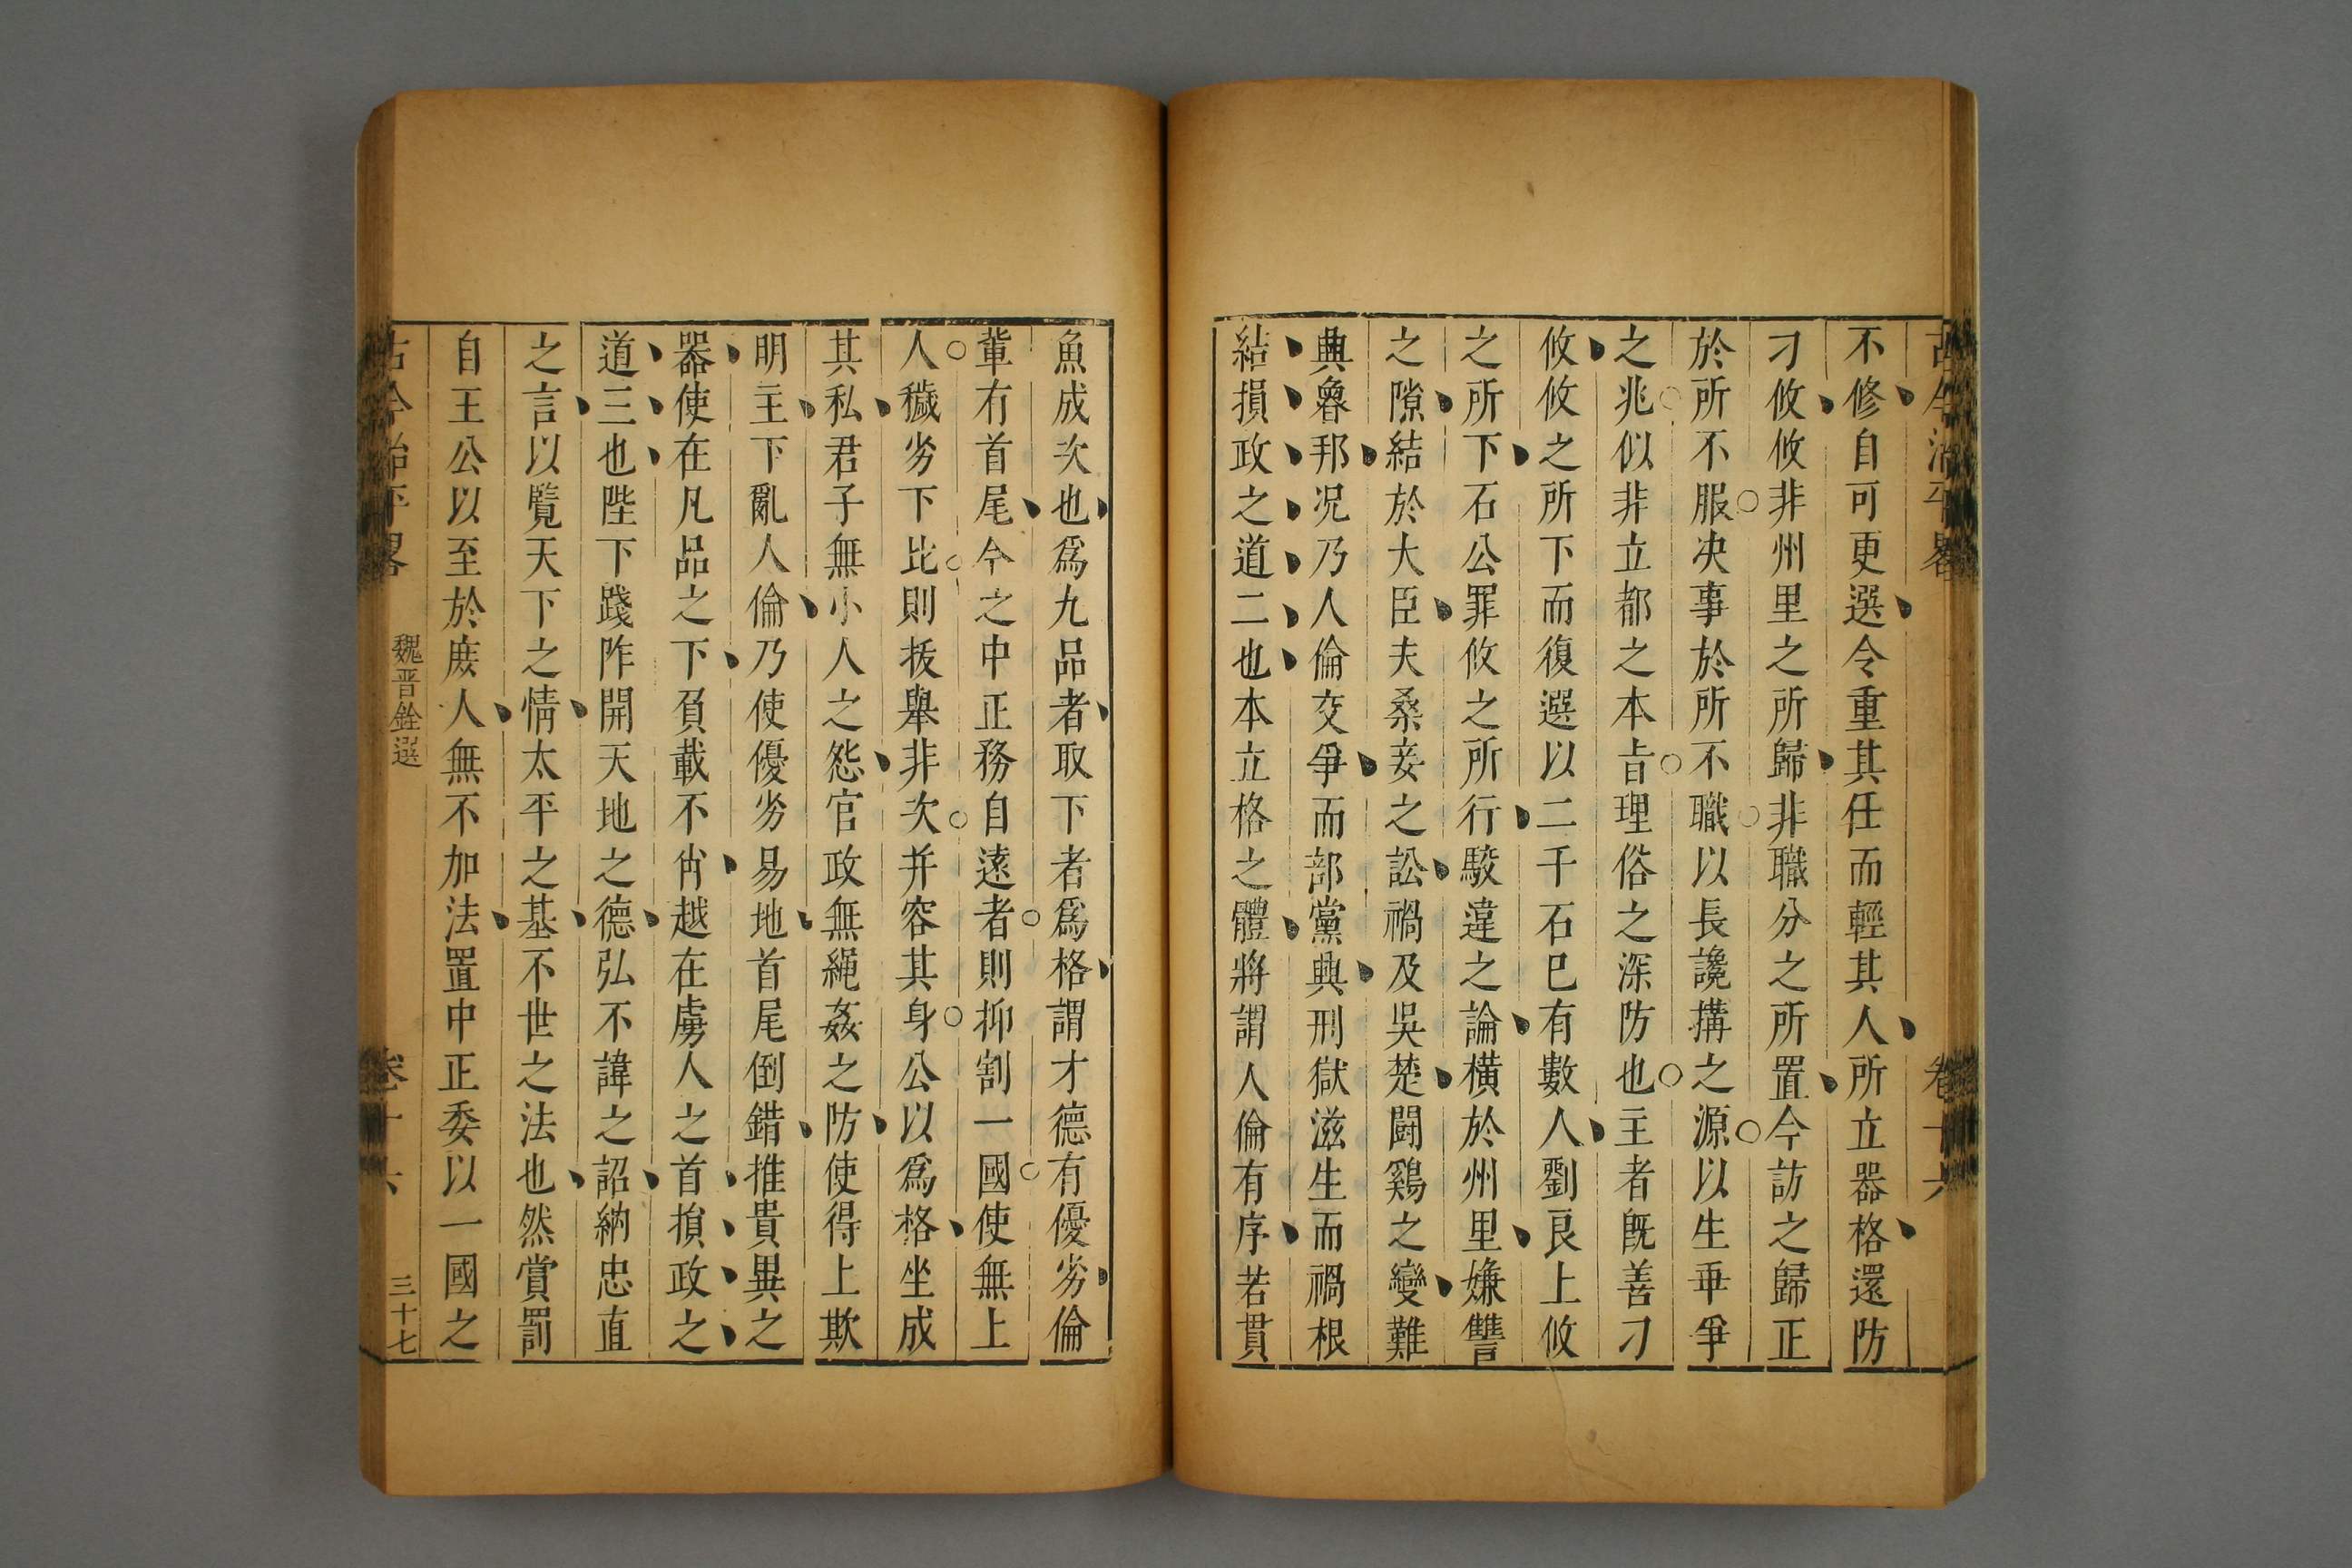 古今治平畧 卷十六
不修自可更選令重其任而輕其人所立器格還防
刁攸攸非州里之所歸非職分之所置今訪之歸正
於所不服决事於所不職以長讒搆之源以生乖爭
之兆似非立都之本㫖理俗之深防也主者旣善刁
攸攸之所下而復選以二千石巳有數人劉良上攸
之所下石公罪攸之所行駮違之論橫於州里嫌讐
之隙結於大臣夫桑妾之訟禍及吳楚鬪鷄之變難
興魯邦况乃人倫交爭而部黨興刑獄滋生而禍根
結損政之道二也本立格之體將謂人倫有序若貫
魚成次也爲九品者取下者爲格謂才德有優劣倫
軰有首尾今之中正務自遠者則抑割一國使無上
人穢劣下比則拔舉非次并容其身公以爲格坐成
其私君子無小人之怨官政無繩姦之防使得上欺
明主下亂人倫乃使優劣易地首尾倒錯推貴異之
器使在凡品之下負載不肖越在虜人之首損政之
道三也陛下踐阼開天地之德弘不諱之詔納忠直
之言以覽天下之情太平之基不世之法也然賞罰
自王公以至於庻人無不加法置中正委以一國之
古今治平畧 魏晋銓選 卷十六 三十七